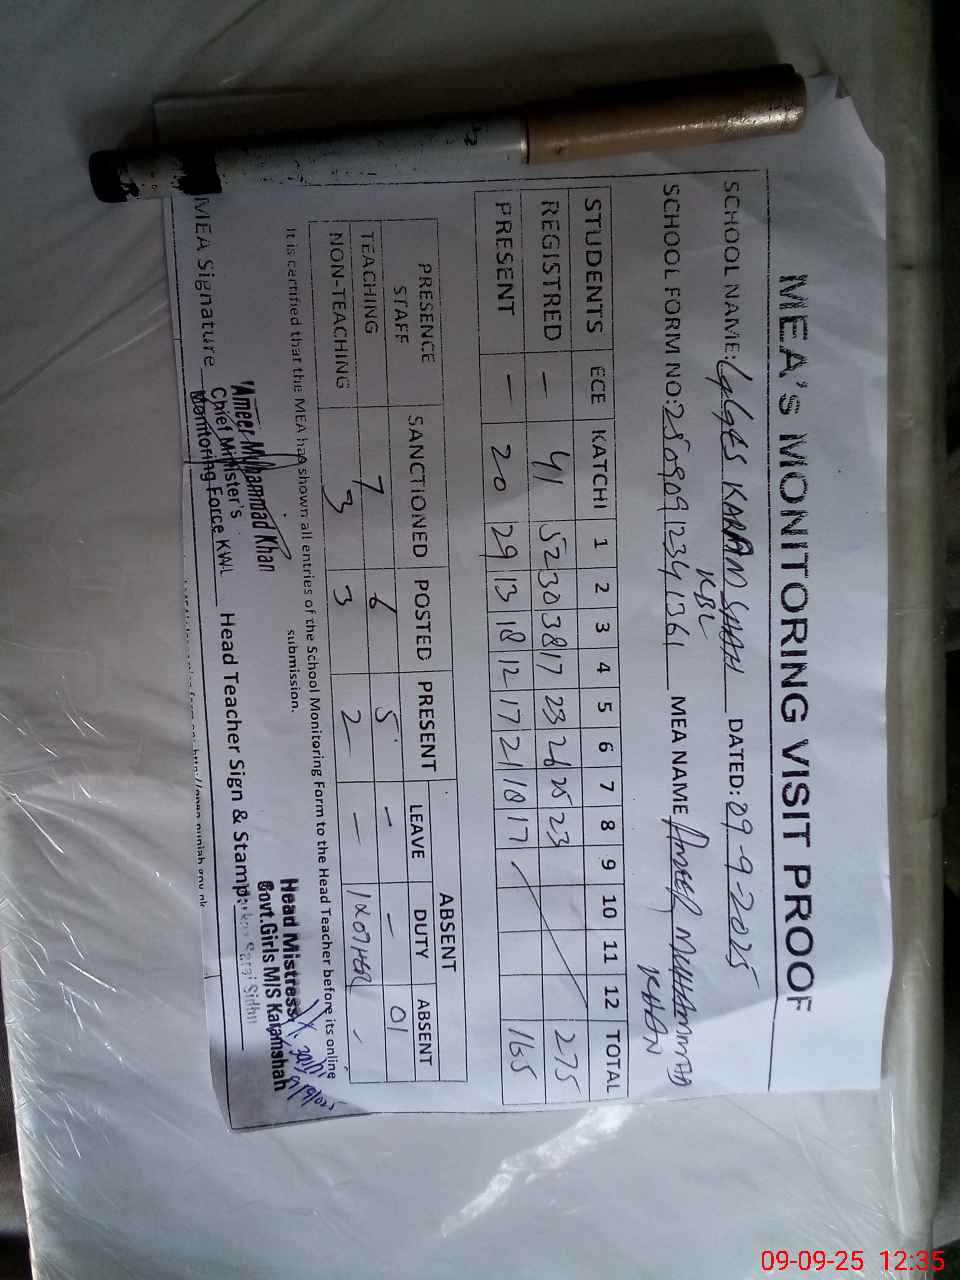 MEA'S MONITORING VISIT PROOF
SCHOOL NAME: GGES KARAM SHAH DATED: 09-9-2025
KBL
SCHOOL FORM NO: MEA NAME AMEER MUHAMMAD
KHAN
STUDENTS ECE KATCHI 1 2 3 4 5 6 7 8 9 10 11 12 TOTAL
REGISTRED – 41 52 30 38 17 23 26 25 23 275
PRESENT – 20 29 13 18 12 17 21 18 17 165
PRESENCE STAFF SANCTIONED POSTED PRESENT ABSENT
LEAVE DUTY ABSENT
TEACHING 7 6 5 – – 01
NON-TEACHING 3 3 2 – 1XOTHER -
It is certified that the MEA has shown all entries of the School Monitoring Form to the Head Teacher before its online
submission.
Ameer Muhammad Khan
Chief Minister's
Monitoring Force KWL
Head Mistress
Govt.Girls M/S Karamshah
MEA Signature Head Teacher Sign & Stamp:
09-09-25 12:35